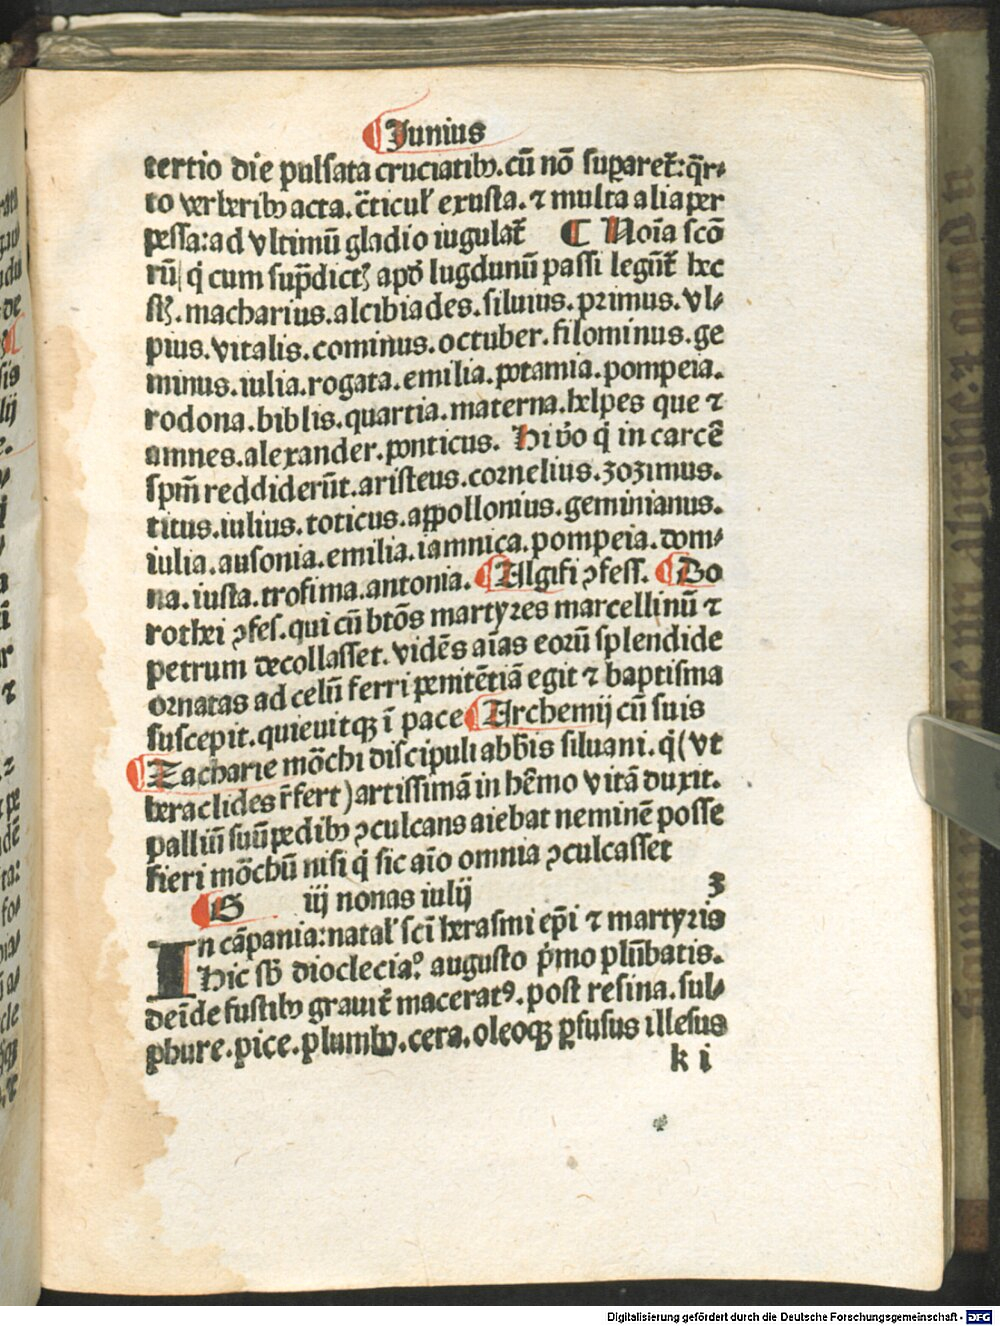 Junius
tertio die pulsata cruciatibꝰ. cū nō suꝑaret̄: q̄r⸗
to verberibꝰ acta. c̄ticulʼ exusta. ⁊ multa alia per
pessa: ad vltimū gladio iugulat̄ ¶ Noīa scō
rū qͥ cum sup̄dictꝭ apd̓ lugdunū passi legūt̄ hec
sūt. macharius. alcibiades. siluius. primus. vl⸗
pius. vitalis. cominus. octuber. filominus. ge
minus. iulia. rogata. emilia. potamia. pompeia.
rodona. biblis. quartia. materna. helpes que ⁊
amnes. alexander. ponticus. Hi v̓o qͥ in carcē
spm̄ reddiderūt. aristeus. cornelius. zozimus.
titus. iulius. toticus. appollonius. geminianus.
iulia. ausonia. emilia. iamnica. pompeia. dom⸗
na. iusta. trofima. antonia. Algisi ꝯfess. Do
rothei ꝯfes. qui cū btōs martyres marcellinū ⁊
petrum decollasset. vidēs aīas eorū splendide
ornatas ad celū ferri penitētiā egit ⁊ baptisma
suscepit. quieuitqꝫ ī pace Archemij cū suis
Zacharie mōchi discipuli abb̄is siluani. qͥ (vt
heraclides r̄fert) artissimā in hēmo vitā duxit.
palliū suū pedibꝰ ꝯculcans aiebat neminē posse
fieri mōchū nisi qͥ sic aīo omnia ꝯculcasset
G iij nonas iulij 3
In cāpania: natalʼ sc̄i herasmi ep̄i ⁊ martyris
Hic sb̄ diocleciaͦ. augusto pͥmo plūbatis.
deīde fustibꝰ grauit̄ maceratꝰ. post resina. sul⸗
phure. pice. plumbo. cera. oleoqꝫ ꝑfusus illesus
k i
Digitalisierung gefördert durch die Deutsche Forschungsgemeinschaft - DFG